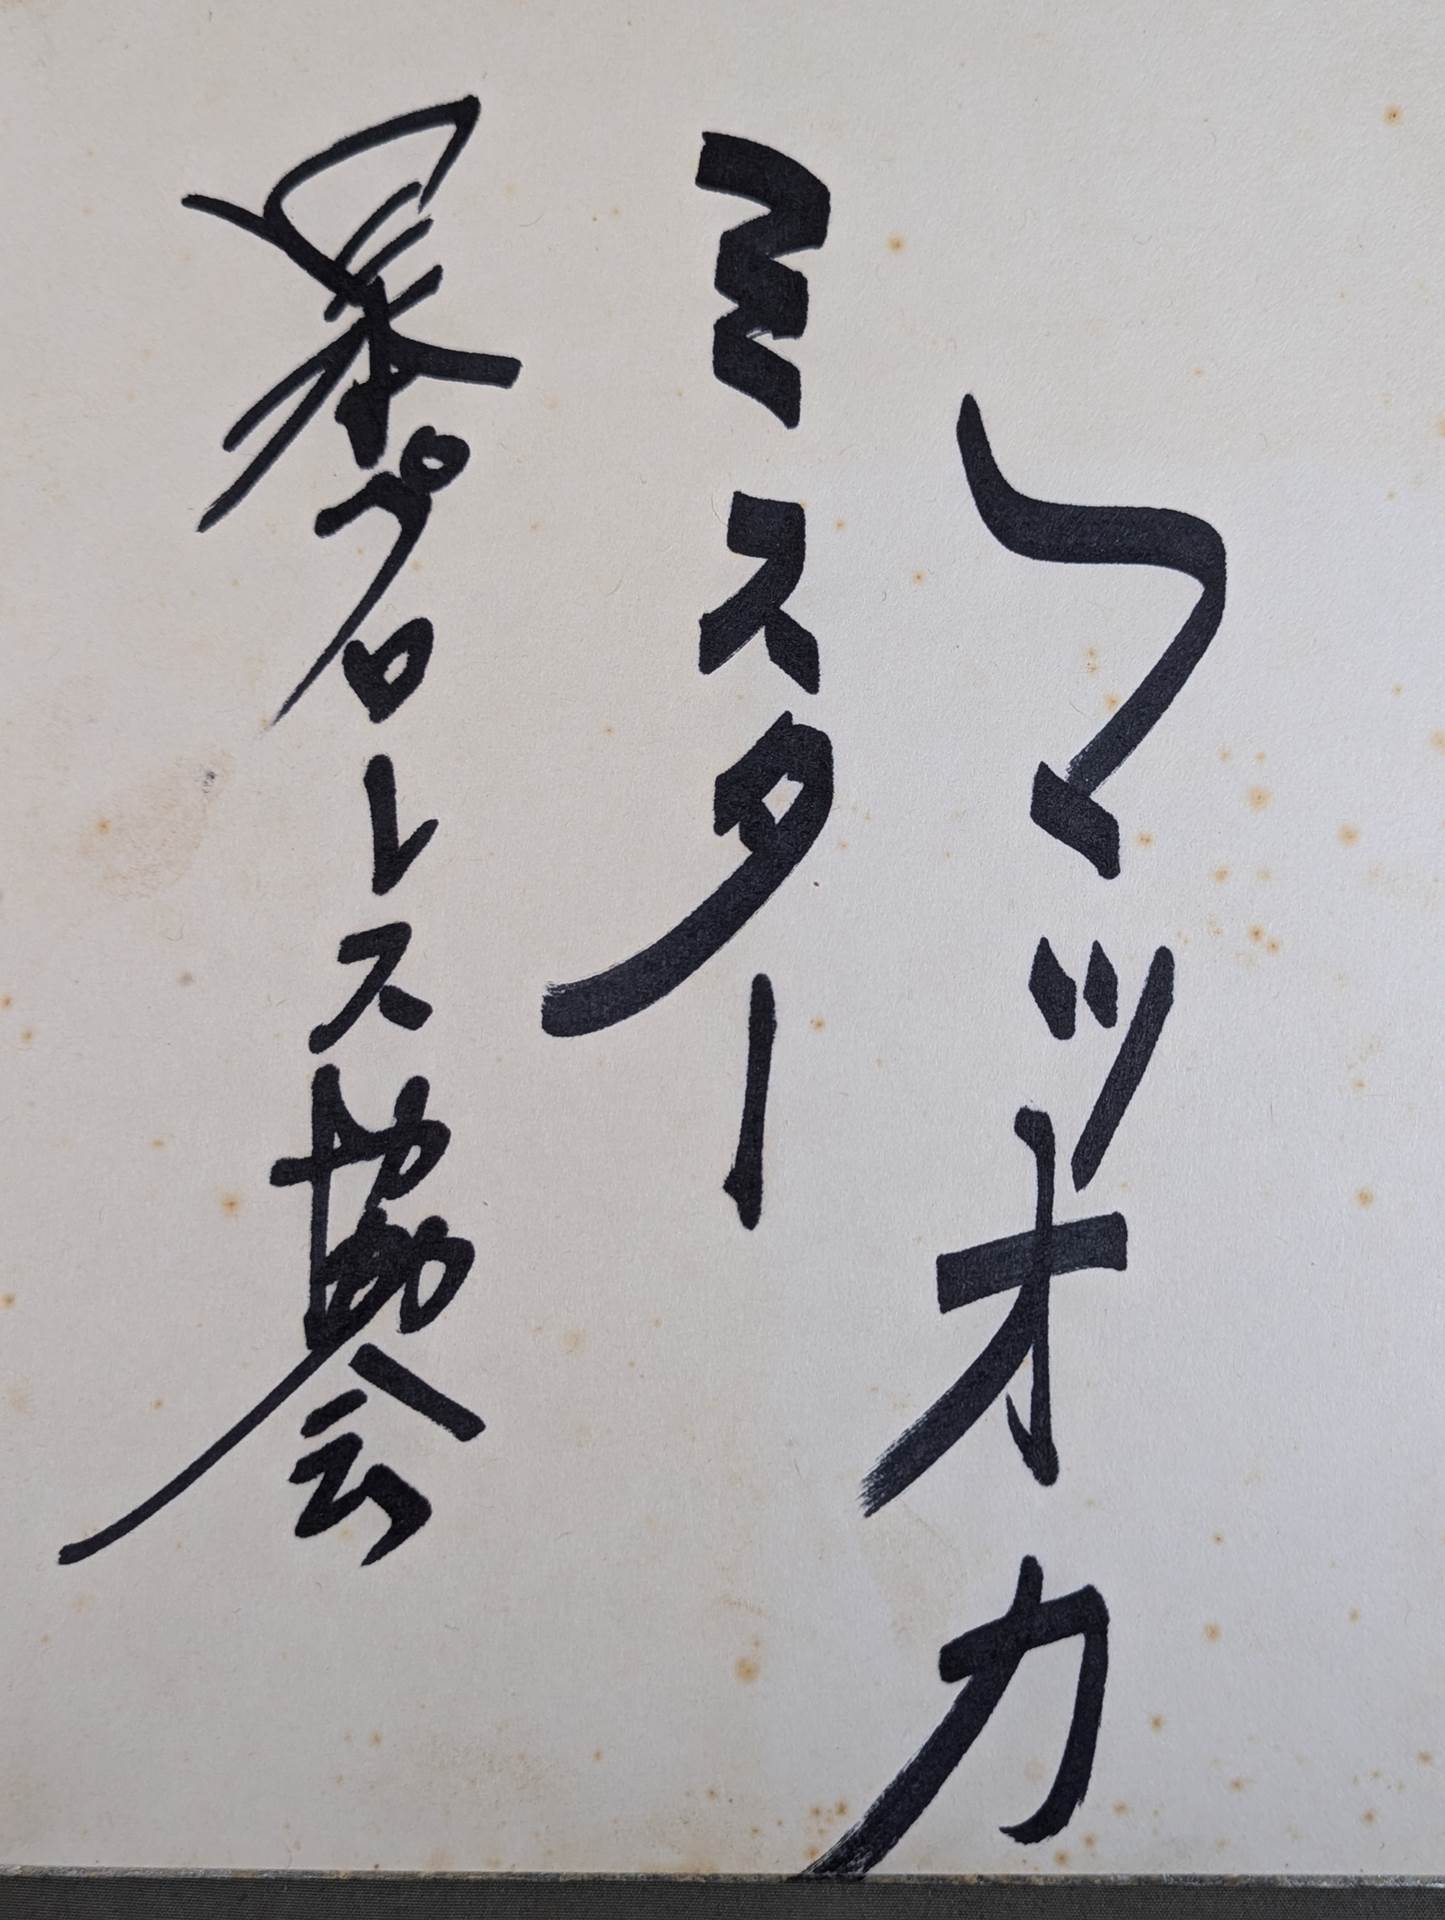 マツオカ
ミスター
プロレス協会